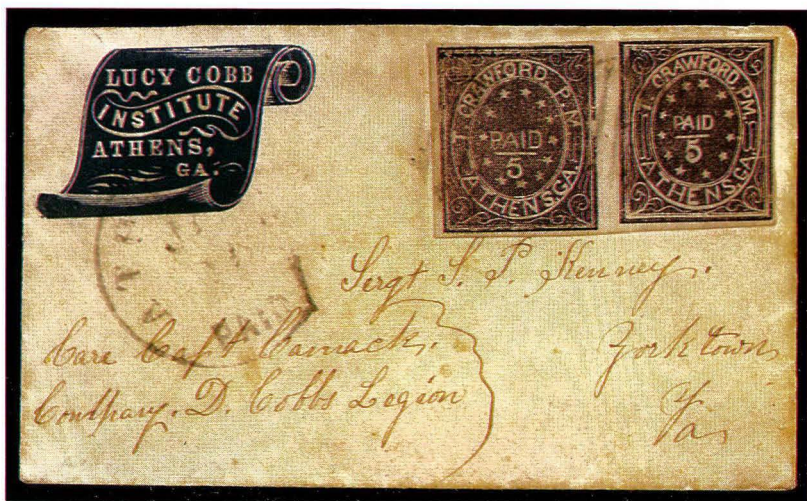 LUCY COBB
INSTITUTE
ATHENS,
GA.
T. CRAWFORD, P.M.
PAID
5
ATHENS, GA.
T. CRAWFORD, P.M.
PAID
5
ATHENS, GA.
PAID
Sergt S. P. Kenney.
Care Capt Camack.
Yorktown
Company. D. Cobbs Legion
Va,